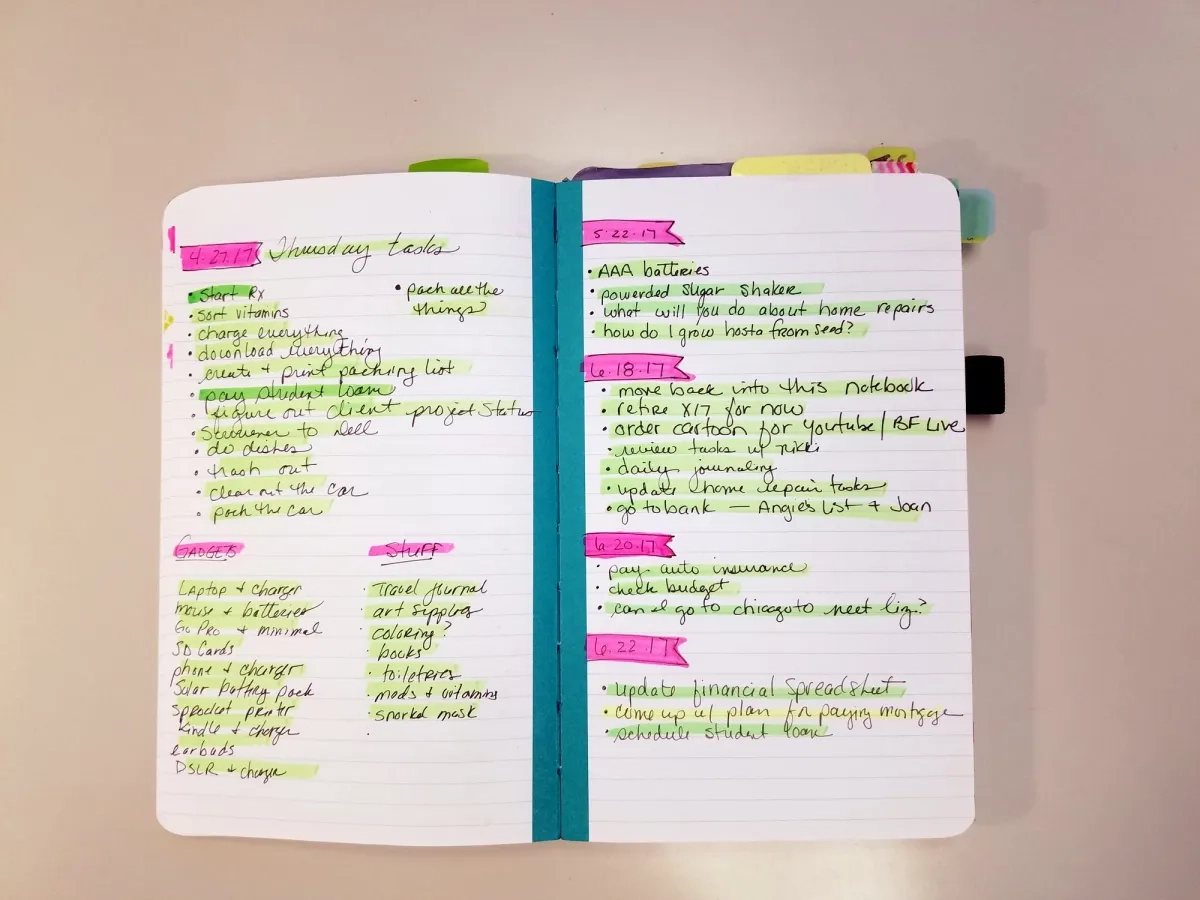 4.27.17 Thursday tasks
• Start Rx
• sort vitamins
• charge everything
• download everything
• create + print packing list
• pay student loan
• figure out client project status
• to Dell
• do dishes
• trash out
• clear out the car
• pack the car
• pack all the
things
GADGETS
Laptop + charger
mouse + batteries
Go Pro + minimal
SD Cards
phone + charger
Solar battery pack
Sprocket printer
Kindle + charger
earbuds
DSLR + charger
Stuff
· Travel journal
· art supplies
· coloring?
· books
· toiletries
· meds + vitamins
· snorkel mask
·
5.22.17
• AAA batteries
• powderded sugar shaker
• what will you do about home repairs
• how do I grow hosta from seed?
6.18.17
• move back into this notebook
• retire X17 for now
• order cartoon for Youtube / BF Live
• review tasks w/ Nikki
• daily journaling
• update home repair tasks
• go to bank — Angie's List + Joan
6.20.17
• pay auto insurance
• check budget
• can I go to chicago to meet Liz?
6.22.17
• update financial spreadsheet
• come up w/ plan for paying mortgage
• schedule student loan